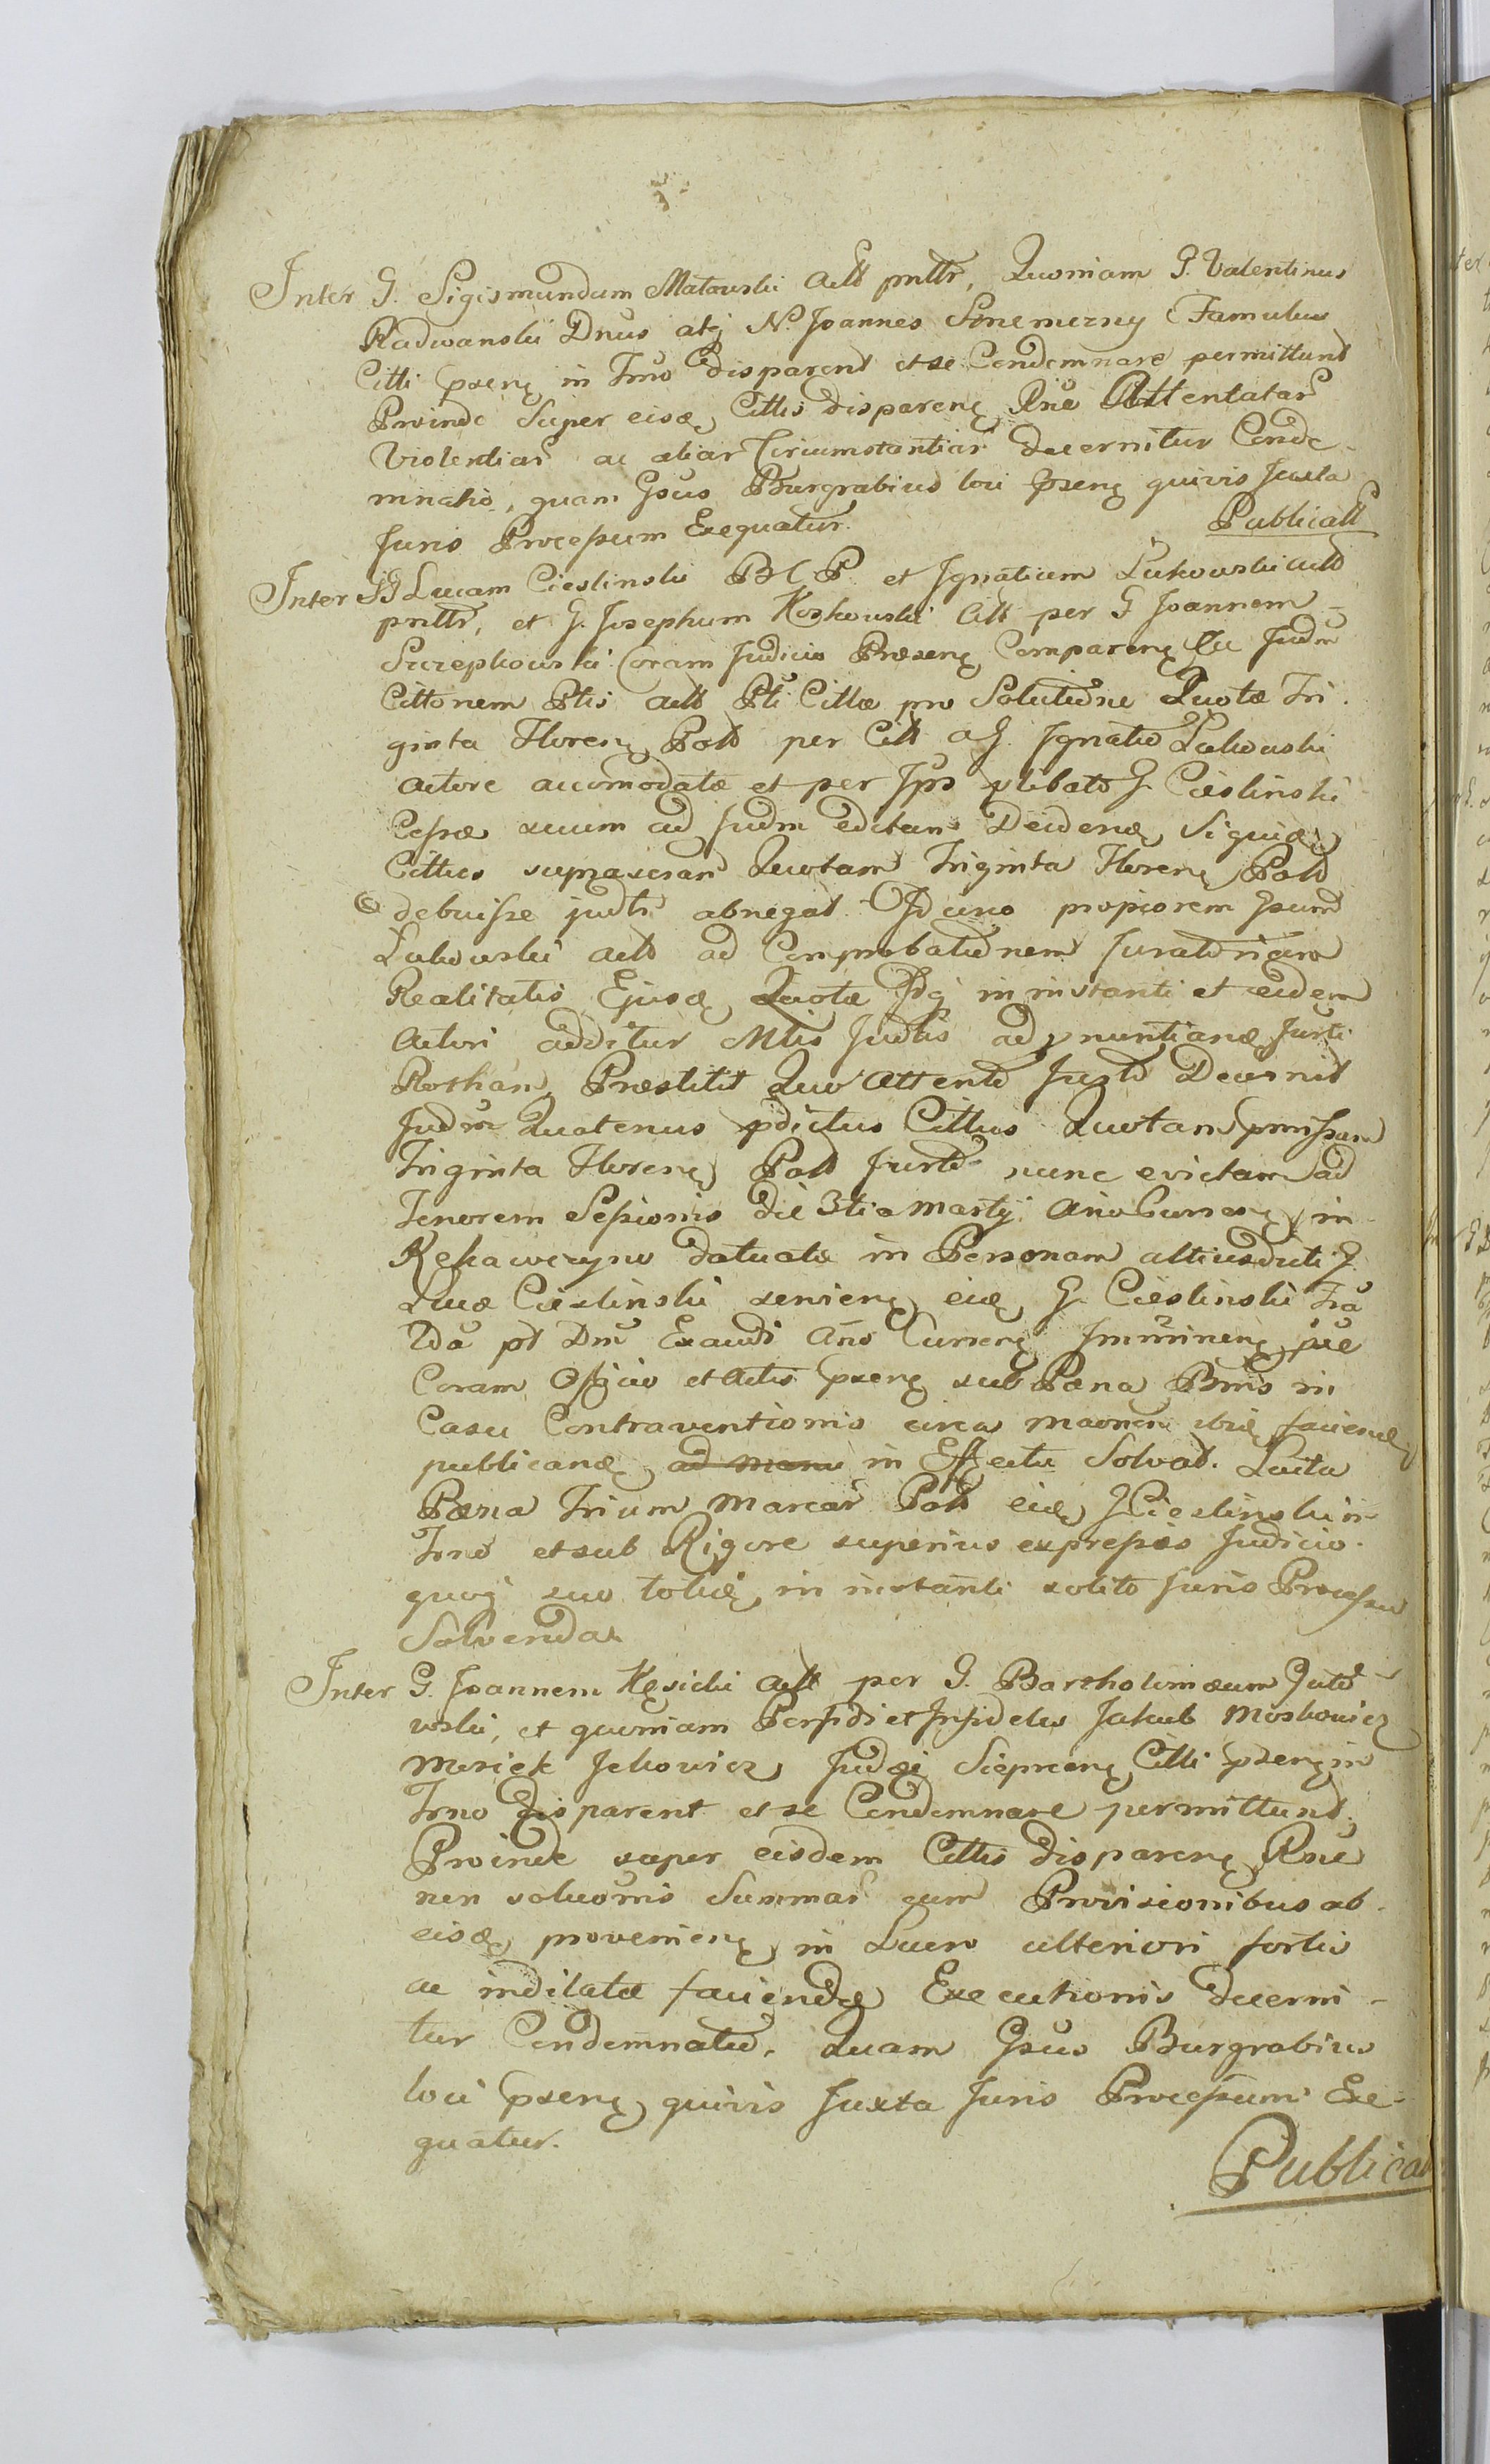 Inter G. Sigismundum Matowski Actt pntte, Quoniam G. Valentinus
Radwanski Dnus atq N. Joannes Famulus
Citti psenq in Trno disparent et se Condemnare permittunt
Proinde Super eisd Cittis disparenq Rne Attentatar
Violentiar ac aliar Circumstantiar decernitur Conde-
mnatio, quam Gsus Burgrabius loci psenq quivis Juxta
Juris Processum Exequatur. Publicatt
Inter GG Lucam Cieslinski B C P et Ignatium Lukowski actt
pntte, et G. Josephum Koskowski Citt per G Joannem
Coram Judicio Praesenq Comparenq Ex Judm
Cittonem Ptis actt Pti Cittae pro Solutione Quotae Tri-
ginta Florenq Poll per Citt a G. Ignatio Lukowski
actore accomodatae et per Ips plibato G. Cieslinski
Cessae suum ad Judm editam Decidendo Siquid
Cittus supraseram Quotam Triginta Florenq Poll
debuisse judte abnegat Id circo propiorem Gsum
Lukowski actt ad Comprobationem Juratoriam
Realitatis Ejusd Quotae Idq in instanti et eidem
Actori additur Mtis Judtis ad pnuntiand Jurti
Rotham, Praestitit Quo attento Juste Decernit
Judm Quatenus pdictus Cittus Quotam pmissam
Triginta Florenq Poll Jurto nunc evictam ad
Tenorem Sessionis die 3tia Martij Ano Currenq in
datuatae in Personam altiusdicti G
Lucae Cieslinski servienq eid G. Cieslinski Fra
2da pt Dm Exaudi Ano Currenq Imminenq
Coram Officio et Actis psenq sub Paena Bnis in
Casu Contraventionis circa ibid faciend
publicand ad manu in Effectu Solvat. Luita
Paena Trium Marcar Poll eid G Cieslinski in
Trno et sub Rigore superius expresso Judicio-
quoq suo totid in instanti solito Juris Processu
Solvenda
Inter G. Joannem Kęsicki actt per G. Bartholomaeum Guto
wski, et quoniam Perfidi et Infideles Jakub Moskowicz
Mosiek Jekowicz Judaei Sieprcenq Citti psenq in
Trno disparent et se Condemnare permittunt,
Proinde super eisdem Cittis disparenq Rne
non soluonis Summar cum Provisionibus ab
eisd provenienq in Lucro ulteriori fortis
ac indilatae faciendae Executionis decerni-
tur Condemnatio. Quam Gsus Burgrabius
loci psenq quivis Juxta Juris Processum Exe-
quatur.
Publicat